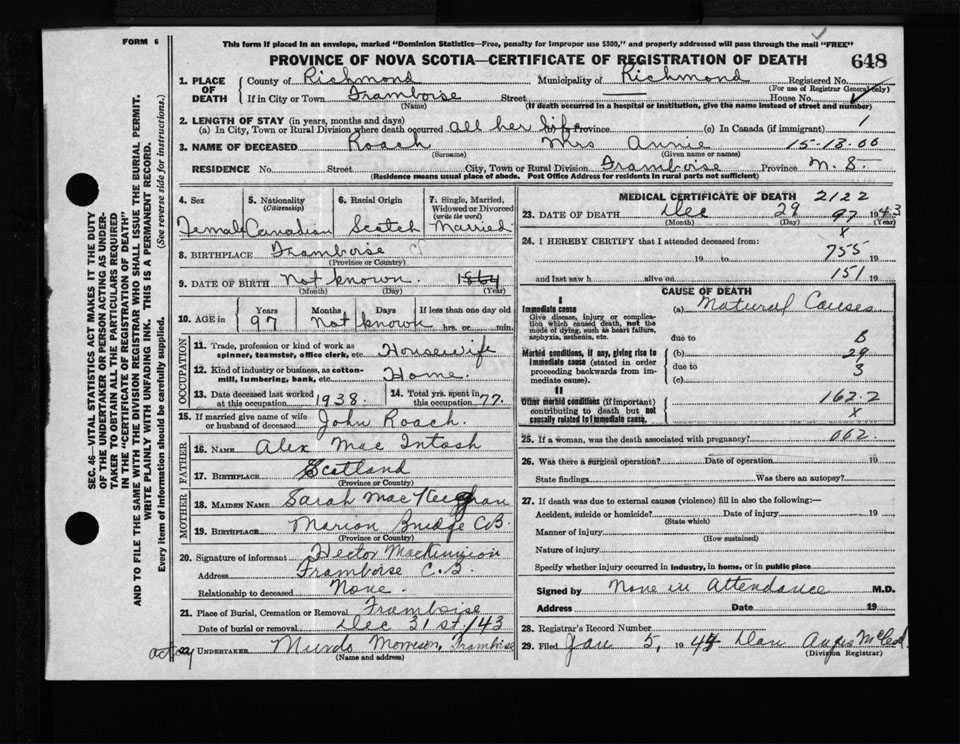 FORM 6
This form if placed in an envelope, marked "Dominion Statistics—Free, penalty for improper use $300," and properly addressed will pass through the mail "FREE"
PROVINCE OF NOVA SCOTIA—CERTIFICATE OF REGISTRATION OF DEATH
648
1. PLACE OF DEATH
County of Richmond Municipality of Richmond Registered No.
(For use of Registrar General only)
If in City or Town Framboise Street House No.
(Name) (If death occurred in a hospital or institution, give the name instead of street and number)
2. LENGTH OF STAY (in years, months and days)
(a) In City, Town or Rural Division where death occurred all her life Province (c) In Canada (if immigrant) 1
3. NAME OF DECEASED Roach Mrs Annie 15-18.00
(Surname) (Given name or names)
RESIDENCE No. Street City, Town or Rural Division Framboise Province N.S.
(Residence means usual place of abode. Post Office Address for residents in rural parts not sufficient)
4. Sex Female
5. Nationality (Citizenship) Canadian
6. Racial Origin Scotch
7. Single, Married, Widowed or Divorced (write the word) Married
8. BIRTHPLACE Framboise
(Province or Country)
9. DATE OF BIRTH Not known 1864
(Month) (Day) (Year)
10. AGE in Years 97 Months Not Days known If less than one day old hrs. or min.
OCCUPATION
11. Trade, profession or kind of work as spinner, teamster, office clerk, etc. Housewife
12. Kind of industry or business, as cotton-mill, lumbering, bank, etc. Home.
13. Date deceased last worked at this occupation 1938.
14. Total yrs. spent in this occupation 77.
15. If married give name of wife or husband of deceased John Roach.
FATHER
16. NAME Alex Mac Intosh
17. BIRTHPLACE Scotland
(Province or Country)
MOTHER
18. MAIDEN NAME Sarah Mac
19. BIRTHPLACE Marion Bridge C.B.
(Province or Country)
20. Signature of informant Hector
Address Framboise C.B.
Relationship to deceased None.
21. Place of Burial, Cremation or Removal Framboise
Date of burial or removal Dec 31st /43
acting 22. UNDERTAKER Murdo Morrison, Framboise
(Name and address)
MEDICAL CERTIFICATE OF DEATH 2122
23. DATE OF DEATH Dec 29 97 1943
(Month) (Day) (Year)
x
24. I HEREBY CERTIFY that I attended deceased from:
19 to 755 19
and last saw h alive on 151 19
CAUSE OF DEATH
I
Immediate cause (a) Natural Causes
Give disease, injury or complication which caused death, not the mode of dying, such as heart failure, asphyxia, asthenia, etc.
due to B
Morbid conditions, if any, giving rise to immediate cause (stated in order proceeding backwards from immediate cause).
(b) 29
due to 3
(c)
II
Other morbid conditions (if important) contributing to death but not causally related to immediate cause.
162.2
x
25. If a woman, was the death associated with pregnancy? 662.
26. Was there a surgical operation? Date of operation 19
State findings Was there an autopsy?
27. If death was due to external causes (violence) fill in also the following:—
Accident, suicide or homicide? Date of injury 19
(State which)
Manner of injury
(How sustained)
Nature of injury
Specify whether injury occurred in industry, in home, or in public place
Signed by None in Attendance M.D.
Address Date 19
28. Registrar's Record Number
29. Filed Jan 5, 1944 Dan Angus McLeod
(Division Registrar)
SEC. 46—VITAL STATISTICS ACT MAKES IT THE DUTY
OF THE UNDERTAKER OR PERSON ACTING AS UNDER-
TAKER TO OBTAIN ALL THE PARTICULARS REQUIRED
IN THE "CERTIFICATE OF REGISTRATION OF DEATH"
AND TO FILE THE SAME WITH THE DIVISION REGISTRAR WHO SHALL ISSUE THE BURIAL PERMIT.
WRITE PLAINLY WITH UNFADING INK. THIS IS A PERMANENT RECORD.
Every item of information should be carefully supplied. (See reverse side for instructions.)